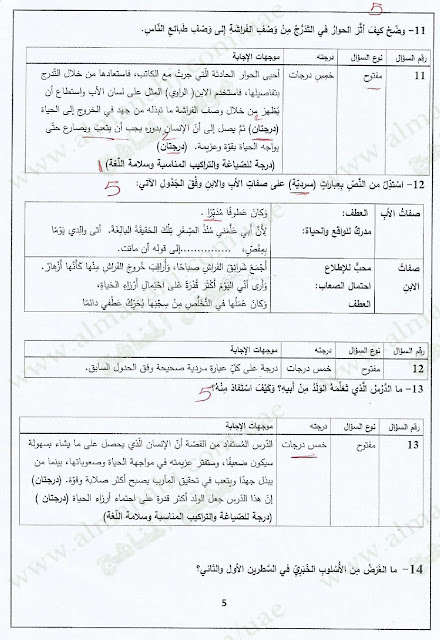 5
11- وضّحْ كيفَ أثّر الحوارُ في التّدَرُّجِ مِنْ وَصْفِ الفراشةِ إلى وَصْفِ طبائعِ النّاسِ.
رقم السؤال نوع السؤال درجته موجهات الإجابة
11 مفتوح خمس درجات أحيى الحوار الحادثة التي جرت مع الكاتب، فاستعادها من خلال التدرج
بتفاصيلها، فاستخدم الابن( الراوي) المثل على لسان الأب واستطاع أن
يُظهر من خلال وصف الفراشة ما تبذله من جهد في الخروج إلى الحياة
(درجتان) ثمّ يصل إلى أنّ الإنسان بدوره يجب أن يتعبَ ويصارع حتّى
يواجه الحياة بقوّة وعزيمة. (درجتان)
(درجة للصّياغة والتراكيب المناسبة وسلامة اللّغة) 1
12- استدِلّ من النّصّ بعباراتٍ (سرديّة) على صفاتِ الأب والابنِ وفْقَ الجَدْولِ الآتي: 5
صفاتُ الأب العطف: وَكانَ عَطوفًا مُدَبِّرًا.
مدركٌ للواقع والحياة: لِأَنَّ أبي علَّمني منذُ الصِّغَرِ تِلْكَ الحَقيقةَ البالِغَةَ. أتى والدي يَوْمًا
بِمِقصٍّ، ..............إلى قوله أن ماتت.
صفاتُ الابنِ محبٌّ للإطلاع أجْمَعُ شَرانِقَ الفَراشِ صباحًا، وَأُراقِبُ خُروجَ الفَراشِ مِنْها كَأَنَّها أزْهارٌ.
احتمال الصعاب: وَأرى أنّي اليَوْمَ أكْثَرُ قُدْرَةً عَلى احْتِمالِ أرْزاءِ الحَياةِ،
العطف وَكانَ عَمَلُها في التَّخَلُّصِ مِنْ سِجْنِها يُحَرِّكُ عَطْفي دائمًا
رقم السؤال نوع السؤال درجته موجهات الإجابة
12 مفتوح خمس درجات درجة على كلّ عبارة سردية صحيحة وفق الجدول السابق.
13- ما الدَّرْسُ الَّذي تَعَلَّمَهُ الوَلَدُ مِنْ أبيهِ؟ وَكَيْفَ اسْتَفادَ مِنْهُ؟ 5
رقم السؤال نوع السؤال درجته موجهات الإجابة
13 مفتوح خمس درجات الدّرس المُستفاد من القصّة أنّ الإنسان الّذي يحصل على ما يشاء بسهولة
سيكون ضعيفًا، وستفتر عزيمته في مواجهة الحياة وصعوباتها، بينما من
يبذل جهدًا ويتعب في تحقيق المآرب يصبح أكثر صلابة وقوّة. (درجتان)
إنّ هذا الدّرس جعل الولد أكثر قدرة على احتماء أرزاء الحياة (درجتان )
(درجة للصّياغة والتراكيب المناسبة وسلامة اللّغة)
14- ما الغَرَضُ مِنَ الأُسْلوبِ الخَبَرِيِّ في السَّطرينِ الأولِ والثّاني؟
5